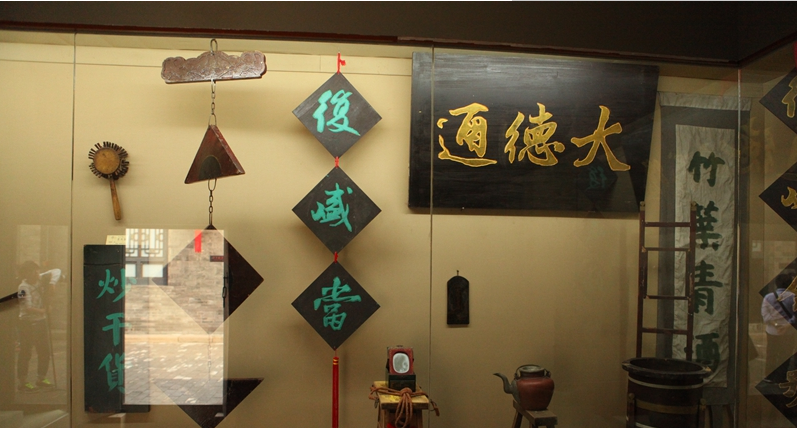 復盛當
大德通
竹葉青酒
炒干貨